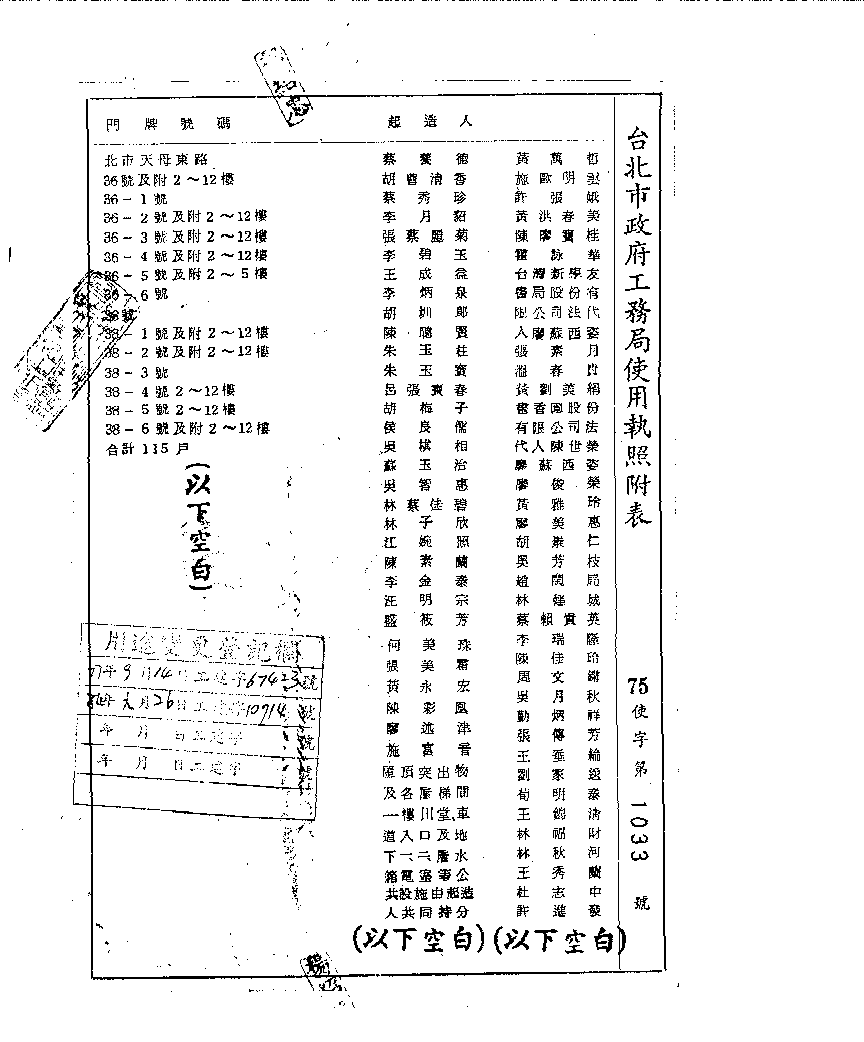 台北市政府工務局使用執照附表
75使字第1033號
起造人
黃萬哲
施歐明
許張娥
黃洪春美
陳廖寶桂
詠華
台灣新學友
書局股份有
限公司法代
人廖蘇西姿
張素月
溫春貴
黃劉美絹
書香園股份
有限公司法
代人陳世榮
廖蘇西姿
廖俊榮
黃雅玲
廖美惠
胡崇仁
吳芳枝
趙蘭局
林城
蔡賴貴英
李瑞隆
陳佳玲
周文謝
吳月秋
勤炳祥
張傳芳
王綸
劉家
荀明泰
王錦清
林福財
林秋河
王秀蘭
杜志中
許進發
(以下空白)
蔡養德
胡曹清香
蔡秀珍
李月貂
張蔡麗菊
李碧玉
王成益
李炳泉
胡圳郎
陳聰賢
朱玉桂
朱玉寶
呂張寶春
胡梅子
侯良儒
吳棋相
蘇玉治
吳智惠
林蔡佳碧
林子欣
江婉照
陳素蘭
李金泰
汪明宗
盛筱芳
何美珠
張美霜
黃永宏
陳彩鳳
廖述津
施富香
屋頂突出物
及各層梯間
一樓川堂、車
道入口及地
下一、二層水
箱電室等公
共設施由起造
人共同持分
(以下空白)
門牌號碼
北市天母東路
36號及附2～12樓
36－1號
36－2號及附2～12樓
36－3號及附2～12樓
36－4號及附2～12樓
36－5號及附2～5樓
36－6號
38號
38－1號及附2～12樓
38－2號及附2～12樓
38－3號
38－4號2～12樓
38－5號2～12樓
38－6號及附2～12樓
合計115戶
(以下空白)
用途變更登記欄
77年9月14日工建字67423號
84年元月26日工建字10914號
年月日工建字號
年月日工建字號